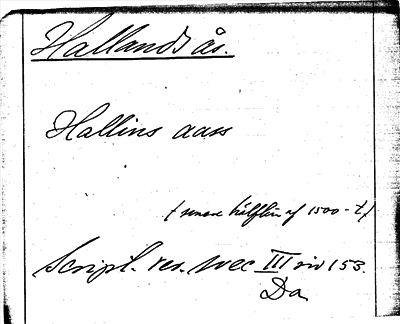 Hallands ås.
Hallins aass
(senare hälften af 1500-t)
Script. rer. svec III sid 153.
Da